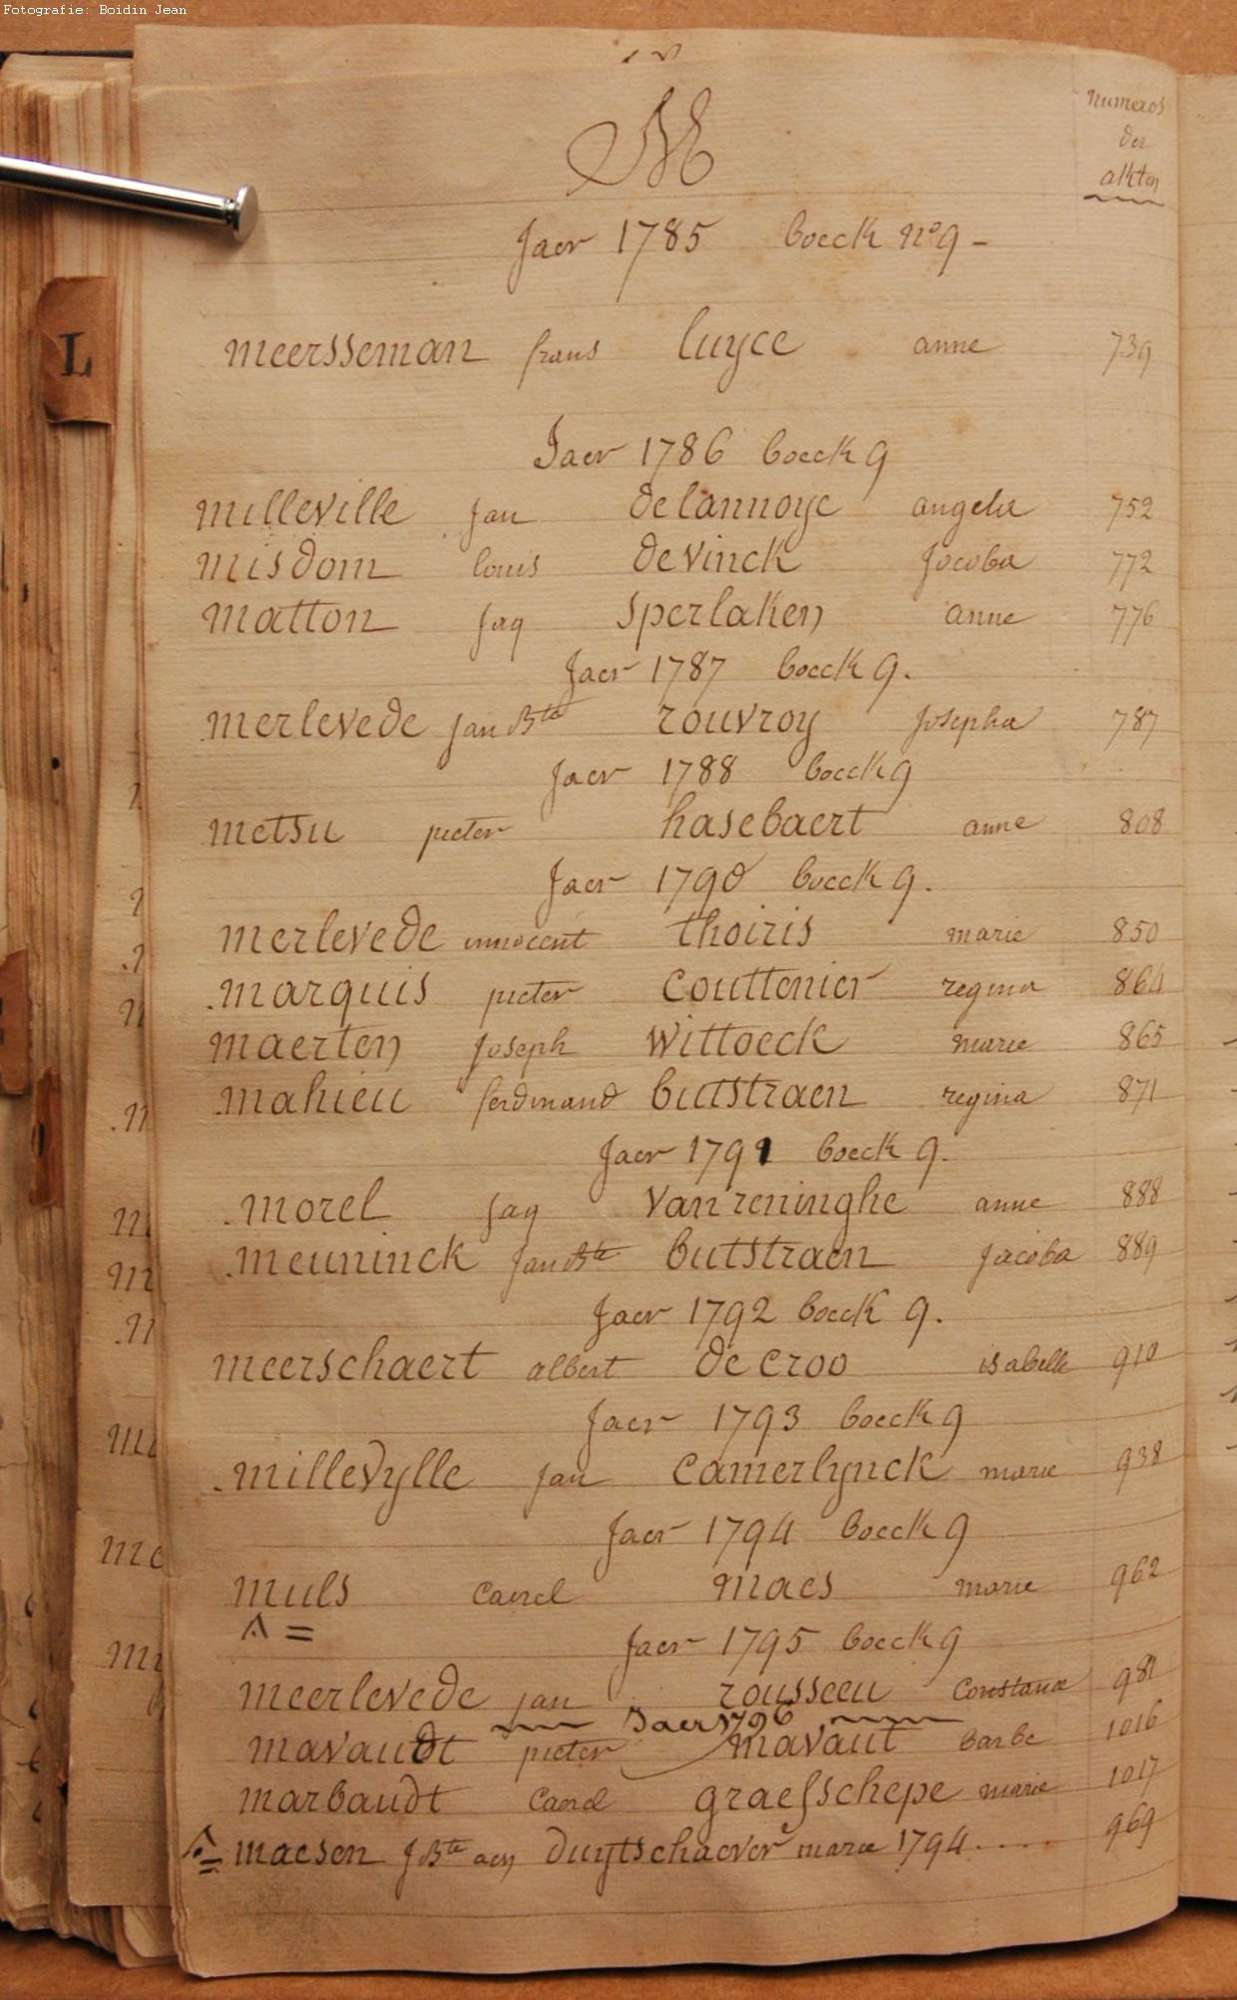 Fotografie: Boidin Jean
M
numeros
der
akten
Jaer 1785 boeck nº 9 -
L
meersseman frans luyce anne 739
Jaer 1786 boeck 9
milleville jan delannoye angela 752
misdom louis devinck Jocoba 772
matton jaq sperlaken anne 776
Jaer 1787 boeck 9.
merlevede jan Bte rouvroy Josepha 787
Jaer 1788 boeck 9
metsu pieter hasebaert anne 808
Jaer 1790 boeck 9.
merlevede innocent thoiris marie 850
marquis pieter Couttenier regina 864
maerten Joseph Wittoeck marie 865
mahieu ferdinand butstraen regina 871
Jaer 1791 boeck 9.
morel jaq Vanreninghe anne 888
meuninck Jan Bte butstraen Jacoba 889
Jaer 1792 boeck 9.
meerschaert albert decroo isabelle 910
Jaer 1793 boeck 9
millevylle jan Camerlynck marie 938
Jaer 1794 boeck 9
muls Carel maes marie 962
Jaer 1795 boeck 9
meerlevede jan rousseeu Constana 981
Jaer 1796
mavaudt pieter mavaut barbe 1016
marbaudt Carel graefschepe marie 1017
maesen J Bte aen duytschaever marie 1794..... 969